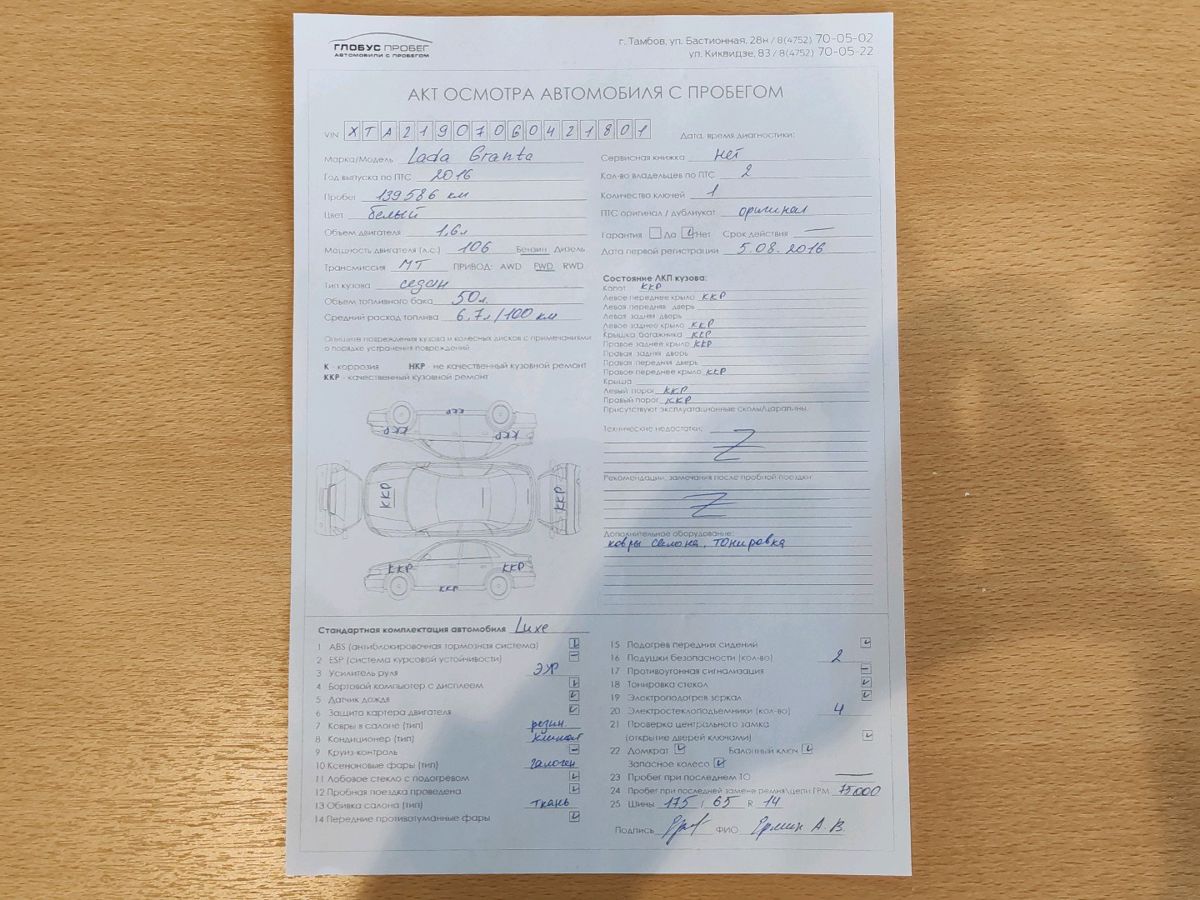 ГЛОБУС ПРОБЕГ
АВТОМОБИЛИ С ПРОБЕГОМ
г. Тамбов, ул. Бастионная, 28н / 8(4752) 70-05-02
ул. Киквидзе, 83 / 8(4752) 70-05-22
АКТ ОСМОТРА АВТОМОБИЛЯ С ПРОБЕГОМ
VIN XTA219070G0421801
Дата, время диагностики:
Марка/Модель Lada Granta
Год выпуска по ПТС 2016
Пробег 139586 км
Цвет белый
Объем двигателя 1,6л
Мощность двигателя (л.с.) 106 Бензин Дизель
Трансмиссия МТ ПРИВОД: AWD FWD RWD
Тип кузова седан
Объем топливного бака 50л.
Средний расход топлива 6,7л/100 км
Опишите повреждения кузова и колесных дисков с примечаниями
о порядке устранения повреждений
К - коррозия НКР - не качественный кузовной ремонт
ККР - качественный кузовной ремонт
ККР
ККР ККР
ККР
ККР
ККР ККР
ККР
Сервисная книжка нет
Кол-во владельцев по ПТС 2
Количество ключей 1
ПТС оригинал / дубликат оригинал
Гарантия Да Нет Срок действия —
Дата первой регистрации 5.08.2016
Состояние ЛКП кузова:
Капот ККР
Левое переднее крыло ККР
Левая передняя дверь
Левая задняя дверь
Левое заднее крыло ККР
Крышка багажника ККР
Правое заднее крыло ККР
Правая задняя дверь
Правая передняя дверь
Правое переднее крыло ККР
Крыша
Левый порог ККР
Правый порог ККР
Присутствуют эксплуатационные сколы/царапины.
Технические недостатки:
Z
Рекомендации, замечания после пробной поездки
Z
Дополнительное оборудование:
ковры салона, тонировка
Стандартная комплектация автомобиля Luxe
1 ABS (антиблокировочная тормозная система)
2 ESP (система курсовой устойчивости) –
3 Усилитель руля ЭУР
4 Бортовой компьютер с дисплеем
5 Датчик дождя
6 Защита картера двигателя
7 Ковры в салоне (тип) резин
8 Кондиционер (тип) климат
9 Круиз-контроль –
10 Ксеноновые фары (тип) галоген
11 Лобовое стекло с подогревом
12 Пробная поездка проведена
13 Обивка салона (тип) ткань
14 Передние противотуманные фары
15 Подогрев передних сидений
16 Подушки безопасности (кол-во) 2
17 Противоугонная сигнализация –
18 Тонировка стекол
19 Электроподогрев зеркал
20 Электростеклоподъемники (кол-во) 4
21 Проверка центрального замка
(открытие дверей ключами)
22 Домкрат Балонный ключ
Запасное колесо
23 Пробег при последнем ТО —
24 Пробег при последней замене ремня/цепи ГРМ 75000
25 Шины 175 / 65 R 14
Подпись ФИО Ермин А. В.